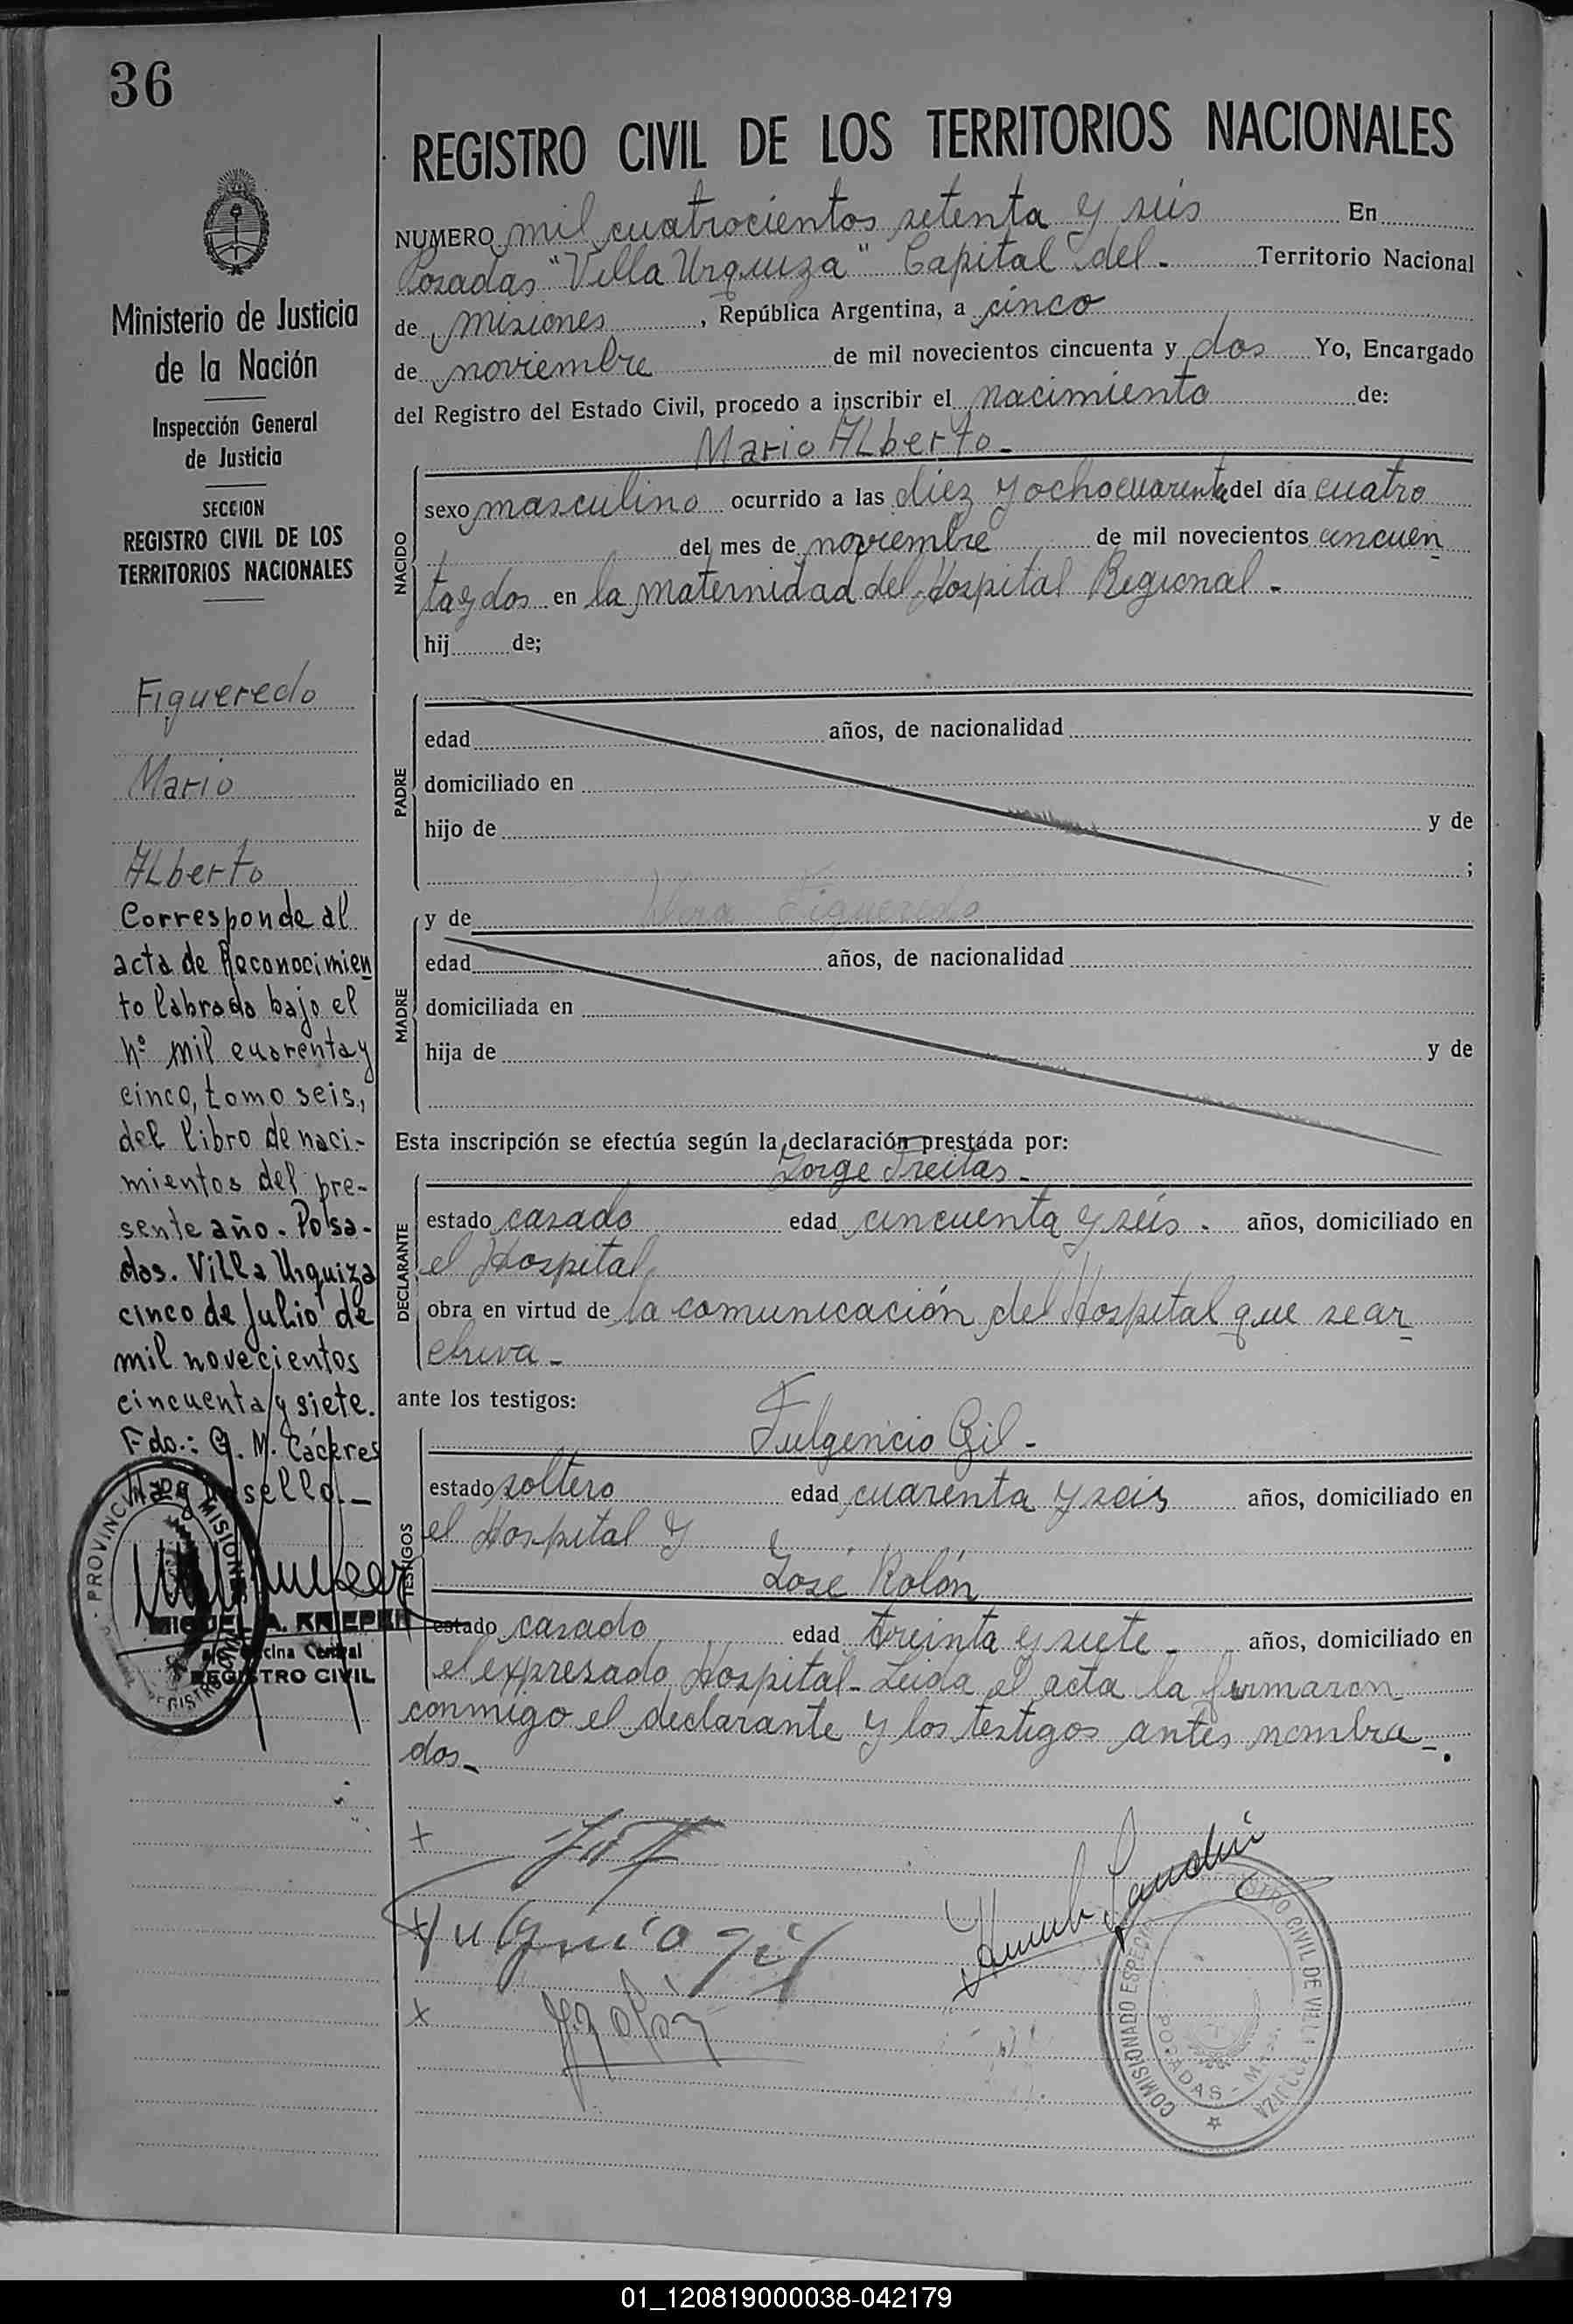 36
REGISTRO CIVIL DE LOS TERRITORIOS NACIONALES
NUMERO mil cuatrocientos setenta y seis En
Posadas "Villa Urquiza" Capital del - Territorio Nacional
de Misiones, República Argentina, a cinco
de noviembre de mil novecientos cincuenta y dos Yo, Encargado
del Registro del Estado Civil, procedo a inscribir el nacimiento de:
Mario ALberto -
NACIDO
sexo masculino ocurrido a las diez y ocho cuarenta del día cuatro
del mes de noviembre de mil novecientos cincuen
ta y dos en la maternidad del Hospital Regional -
hij de;
PADRE
edad años, de nacionalidad
domiciliado en
hijo de y de
;
MADRE
y de Figueredo
edad años, de nacionalidad
domiciliada en
hija de y de
Esta inscripción se efectúa según la declaración prestada por:
Jorge Freitas -
DECLARANTE
estado casado edad cincuenta y seis - años, domiciliado en
el Hospital
obra en virtud de la comunicación del Hospital que se ar
chiva -
ante los testigos:
Fulgencio Gil -
TESTIGOS
estado soltero edad cuarenta y seis años, domiciliado en
el Hospital y
José Rolón
estado casado edad treinta y siete - años, domiciliado en
el expresado Hospital - Leida el acta la firmaron
conmigo el declarante y los testigos antes nombra-
dos -
Fulgencio gil
COMISIONADO ESPECIAL REGISTRO CIVIL DE VILLA URQUIZA
POSADAS - MIS.
Ministerio de Justicia
de la Nación
Inspección General
de Justicia
SECCION
REGISTRO CIVIL DE LOS
TERRITORIOS NACIONALES
Figueredo
Mario
ALberto
Corresponde al
acta de Reconocimien
to labrada bajo el
Nº mil cuarenta y
cinco, tomo seis,
del libro de naci-
mientos del pre-
sente año. Posa-
das. Villa Urquiza
cinco de Julio de
mil novecientos
cincuenta y siete.
Fdo.: G. M. Cáceres
Hay un sello. -
PROVINCIA MISIONES
MIGUEL A. KRIEPER
Oficina Central
REGISTRO CIVIL
01_120819000038-042179